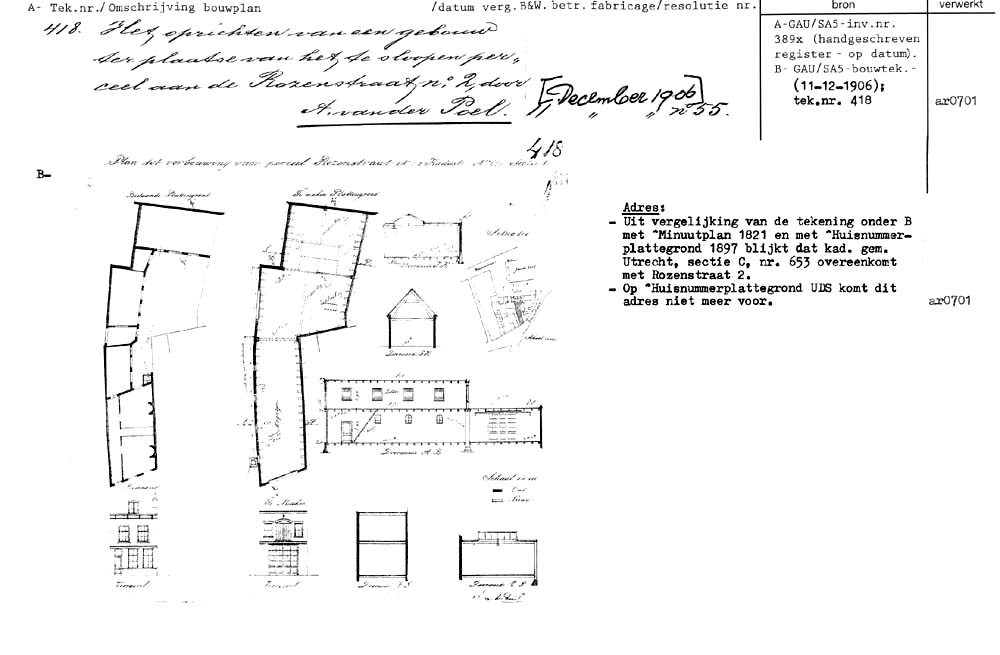 A- Tek.nr./Omschrijving bouwplan /datum verg.B&W. betr. fabricage/resolutie nr. bron verwerkt
418. Het oprichten van een gebouw
ter plaatse van het te sloopen per-
ceel aan de Rozenstraat no. 2, door
A. van der Poel.
[December 1906]
„ „ „ no 55.
A-GAU/SA5-inv.nr.
389x (handgeschreven
register - op datum).
B- GAU/SA5-bouwtek.-
(11-12-1906);
tek.nr. 418
ar0701
418
Plan tot verbouwing van perceel Rozenstraat No. 2 Kadaster
B-
Bestaande Plattegrond
Te maken Plattegrond
Situatie
Doorsnede A.B.
Schaal
Oud
Nieuw
Te Maken
Voorgevel
Voorgevel
Adres:
- Uit vergelijking van de tekening onder B
met ^Minuutplan 1821 en met ^Huisnummer-
plattegrond 1897 blijkt dat kad. gem.
Utrecht, sectie C, nr. 653 overeenkomt
met Rozenstraat 2.
- Op ^Huisnummerplattegrond UDS komt dit
adres niet meer voor.
ar0701